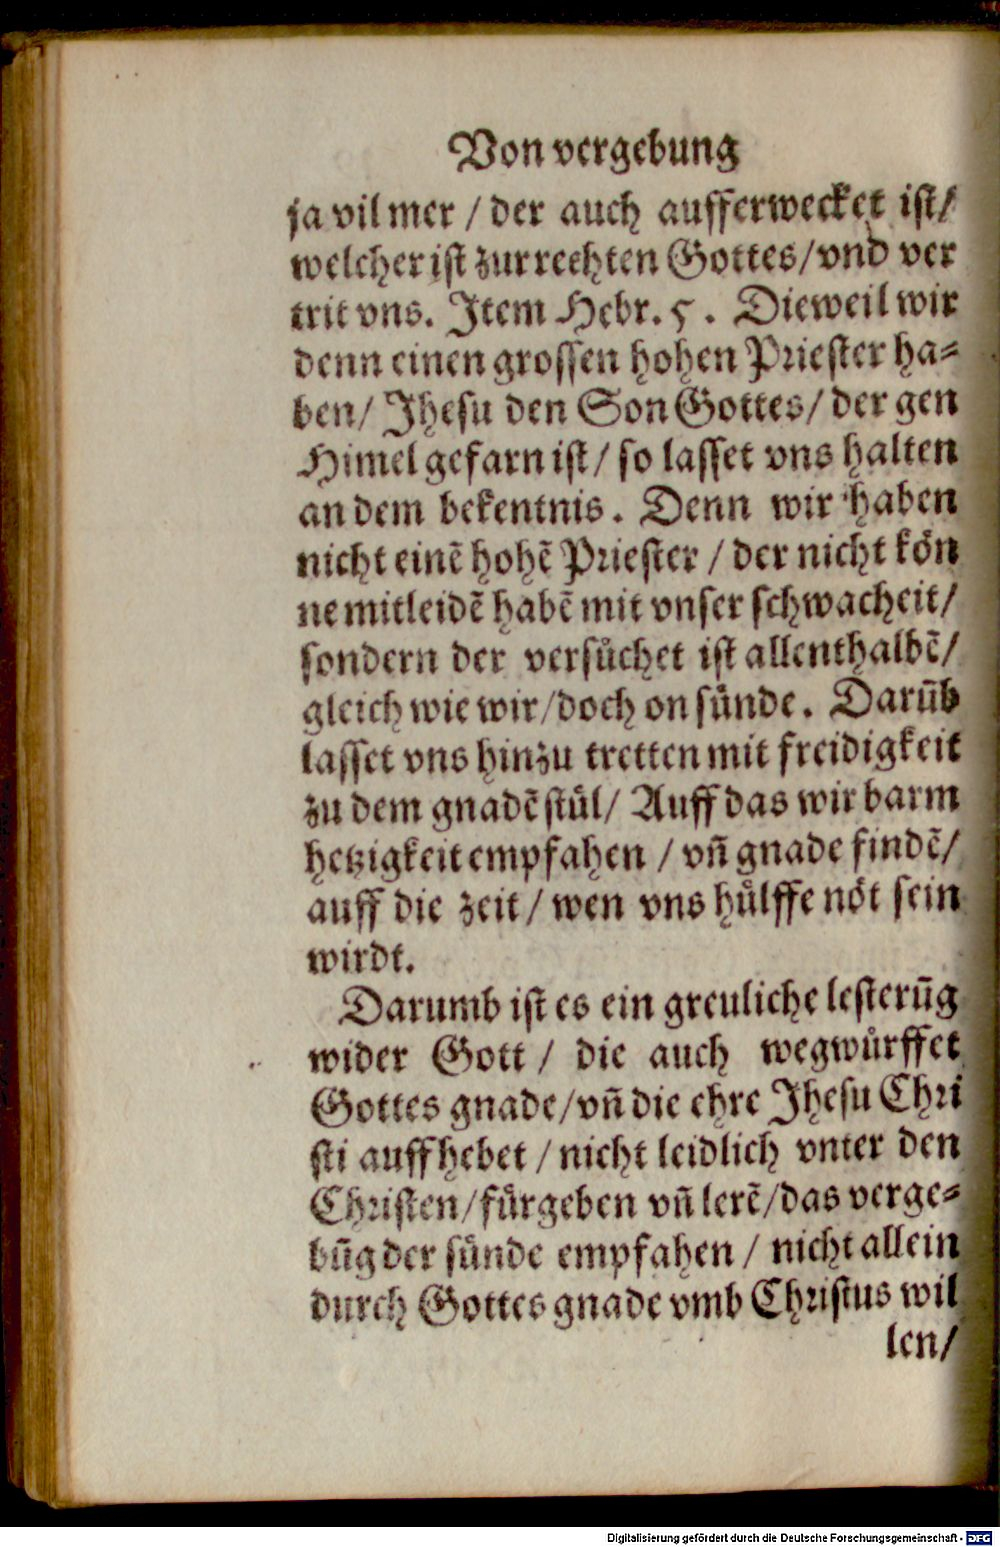 Von vergebung
ja vil mer / der auch aufferwecket ist/
welcher ist zur rechten Gottes/vnd ver
trit vns. Item Hebr. 5. Dieweil wir
denn einen grossen hohen Priester ha⸗
ben/ Jhesu den Son Gottes/ der gen
Himel gefarn ist/ so lasset vns halten
an dem bekentnis. Denn wir haben
nicht einē hohē Priester / der nicht kön
ne mitleidē habē mit vnser schwacheit/
sondern der versůchet ist allenthalbē/
gleich wie wir/doch on sünde. Darūb
lasset vns hinzu tretten mit freidigkeit
zu dem gnadē stůl/ Auff das wir barm
hetzigkeit empfahen / vn̄ gnade findē/
auff die zeit / wen vns hůlffe nöt sein
wirdt.
Darumb ist es ein greuliche lesterūg
wider Gott / die auch wegwůrffet
Gottes gnade/vn̄ die ehre Jhesu Chri
sti auffhebet / nicht leidlich vnter den
Christen/fůrgeben vn̄ lerē/das verge⸗
būg der sünde empfahen / nicht allein
durch Gottes gnade vmb Christus wil
len/
Digitalisierung gefördert durch die Deutsche Forschungsgemeinschaft - DFG